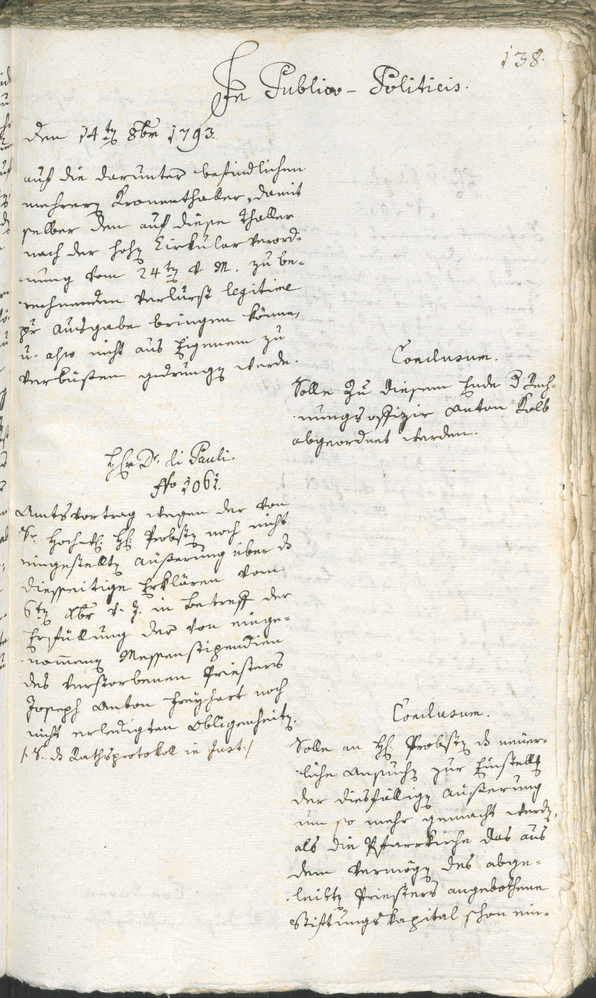 138.
In Publico-Politicis.
den 14ten 8br 1793.
auf die darunter befindlichen
mehrern Kronenthaler, damit
selber den auf diese Thaller
nach der hohen Zirkularverord-
nung vom 24ten v. M. zu be-
rechnenden Verlurst legitime
pr Ausgabe bringen könne,
u. also nicht aus Eigenem zu
verbüßen gedrungen werde.
Conclusum.
Solle zu diesem Ende der Rech-
nungsoffizir Anton Kolb
abgeordnet werden.
Hr Dr. di Pauli.
No 1061.
Amtsvortrag wegen der von
Sr. Hochw. H. Probsten noch nicht
eingestellten Äußerung über das
diesseitige Erklären vom
6ten Xbr v. J. in Betreff der
Erfüllung der von einge-
nommenen Messenstipendien
des verstorbenen Priesters
Joseph Anton Freyhart noch
nicht erledigten Obligenheiten.
/: S. das Rathsprotokol in Just. :/
Conclusum.
Solle an H. Probsten das neuer-
liche Ansuchen zur Einstellung
der diesfälligen Äußerung
um so mehr gemacht werden,
als die Pfarrkirche das aus
dem Vermögen des abge-
leibten Priesters angebothene
Stiftungskapital schon ein-